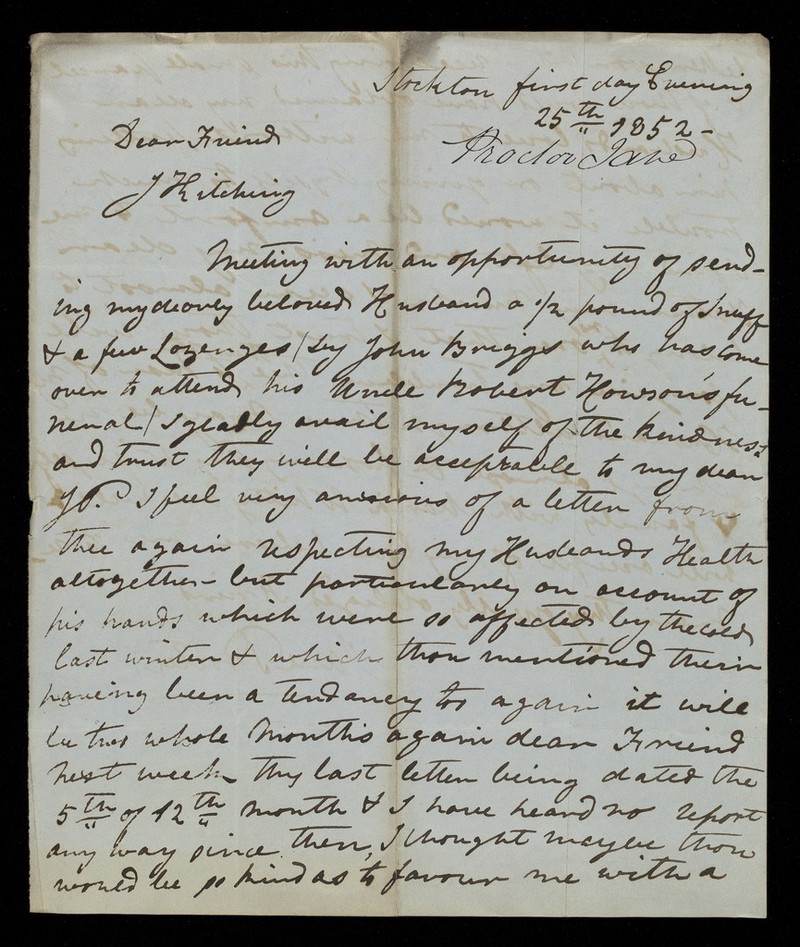 Stockton first day Evening
25th 1852-
Proctor Jane
Dear Friend
J Kitching
Meeting with an opportunity of send-
ing my dearly beloved Husband a 1/2 pound of Snuff
& a few Lozenges / by John Briggs who has come
over to attend his Uncle Robert Howson's fu-
neral / I gladly avail myself of the kindness
and trust they will be acceptable to my dear
J P. I feel very anxious of a letter from
thee again respecting my Husbands Health
altogether - but particularly on account of
his hands which were so affected by the cold
last winter & which thou mentioned their
having been a tendancy to again it will
be two whole Months again dear Friend
next week - Thy last letter being dated the
5th of 12th month & I have heard no report
any way since then, I thought maybe thou
would be so kind as to favour me with a